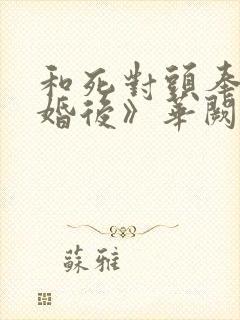 和死對頭奉
婚後》華闕
蘇雅